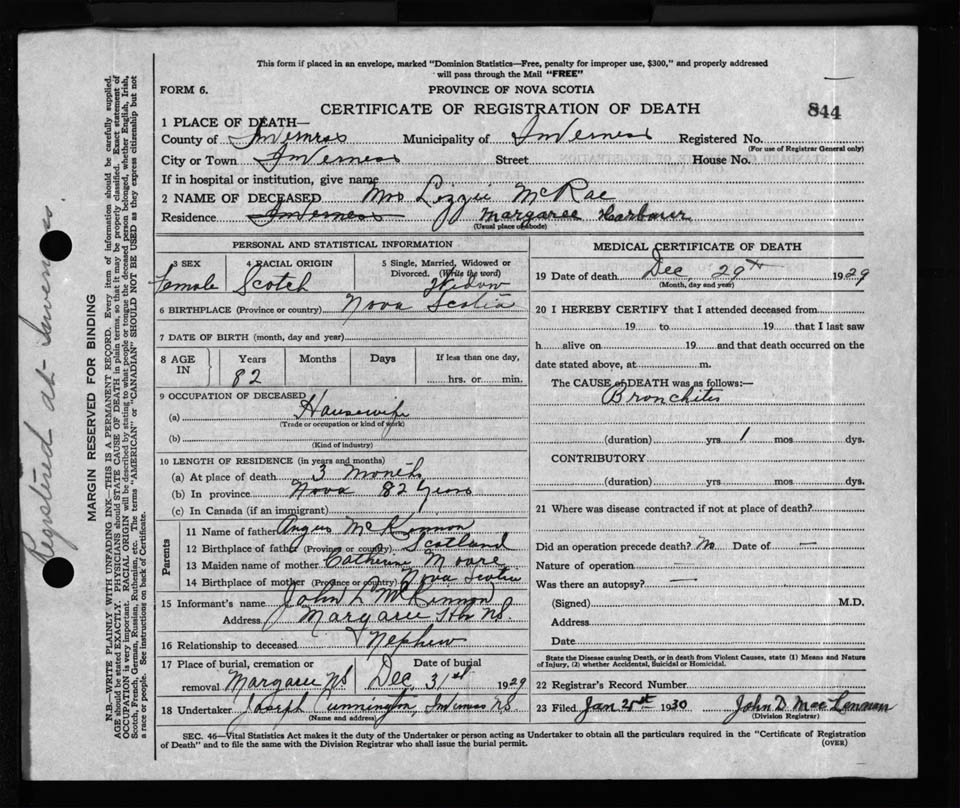 This form if placed in an envelope, marked "Dominion Statistics—Free, penalty for improper use, $300," and properly addressed
will pass through the Mail "FREE"
FORM 6.
PROVINCE OF NOVA SCOTIA
CERTIFICATE OF REGISTRATION OF DEATH
844
1 PLACE OF DEATH—
County of Inverness Municipality of Inverness Registered No.
(For use of Registrar General only)
City or Town Inverness Street House No.
If in hospital or institution, give name
2 NAME OF DECEASED Mrs Lizzie McRae
Residence Inverness Margaree Harbour
(Usual place of abode)
PERSONAL AND STATISTICAL INFORMATION
3 SEX 4 RACIAL ORIGIN 5 Single, Married, Widowed or
Divorced. (Write the word)
Female Scotch Widow
6 BIRTHPLACE (Province or country) Nova Scotia
7 DATE OF BIRTH (month, day and year)
8 AGE IN Years Months Days If less than one day,
82 hrs. or min.
9 OCCUPATION OF DECEASED
(a) Housewife
(Trade or occupation or kind of work)
(b)
(Kind of industry)
10 LENGTH OF RESIDENCE (in years and months)
(a) At place of death 3 months
(b) In province Nova 82 Years
(c) In Canada (if an immigrant)
Parents
11 Name of father Angus McKinnon
12 Birthplace of father (Province or country) Scotland
13 Maiden name of mother Catherine Moore
14 Birthplace of mother (Province or country) Nova Scotia
15 Informant's name John L McKinnon
Address Margaree Hbr NS.
16 Relationship to deceased Nephew
17 Place of burial, cremation or Date of burial
removal Margaree NS Dec 31st 1929
18 Undertaker Joseph Cunnington, Inverness NS.
(Name and address)
MEDICAL CERTIFICATE OF DEATH
19 Date of death Dec 29th 1929
(Month, day and year)
20 I HEREBY CERTIFY that I attended deceased from
19 to 19 that I last saw
h alive on 19 and that death occurred on the
date stated above, at m.
The CAUSE of DEATH was as follows:—
Bronchitis
(duration) yrs 1 mos dys.
CONTRIBUTORY
(duration) yrs mos dys.
21 Where was disease contracted if not at place of death?
Did an operation precede death? No Date of —
Nature of operation —
Was there an autopsy? —
(Signed) M.D.
Address
Date
State the Disease causing Death, or in death from Violent Causes, state (1) Means and Nature
of Injury, (2) whether Accidental, Suicidal or Homicidal.
22 Registrar's Record Number
23 Filed Jan 1930 John D MacLennan
(Division Registrar)
SEC. 46—Vital Statistics Act makes it the duty of the Undertaker or person acting as Undertaker to obtain all the particulars required in the "Certificate of Registration
of Death" and to file the same with the Division Registrar who shall issue the burial permit.
(OVER)
Registered at Inverness.
MARGIN RESERVED FOR BINDING
N.B.—WRITE PLAINLY WITH UNFADING INK—THIS IS A PERMANENT RECORD. Every item of information should be carefully supplied.
AGE should be stated EXACTLY. PHYSICIANS should STATE CAUSE OF DEATH in plain terms, so that it may be properly classified. Exact statement of
OCCUPATION is very important. RACIAL ORIGIN will be described by stating to what people or tongue the deceased person belonged, whether English, Irish,
Scotch, French, German, Russian, Ruthenian, etc. The terms "AMERICAN" or "CANADIAN" SHOULD NOT BE USED as they express citizenship but not
a race or people. See instructions on back of Certificate.